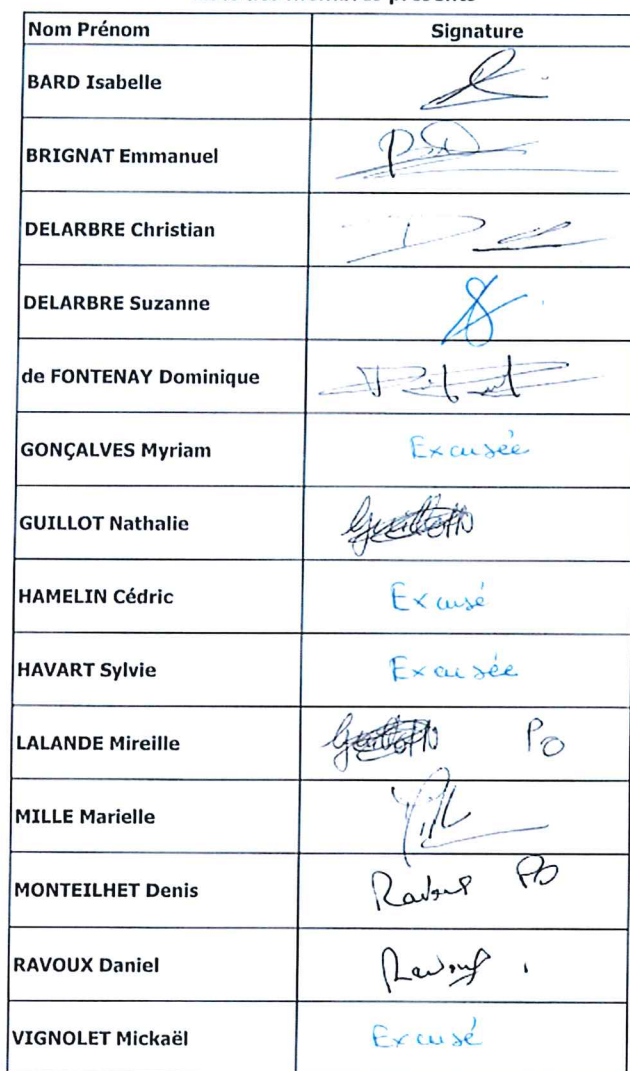 membres présents
Nom Prénom Signature
BARD Isabelle
BRIGNAT Emmanuel
DELARBRE Christian
DELARBRE Suzanne
de FONTENAY Dominique
GONÇALVES Myriam Excusée
GUILLOT Nathalie Guillot N
HAMELIN Cédric Excusé
HAVART Sylvie Excusée
LALANDE Mireille Guillot N PO
MILLE Marielle
MONTEILHET Denis Ravoux PO
RAVOUX Daniel Ravoux
VIGNOLET Mickaël Excusé